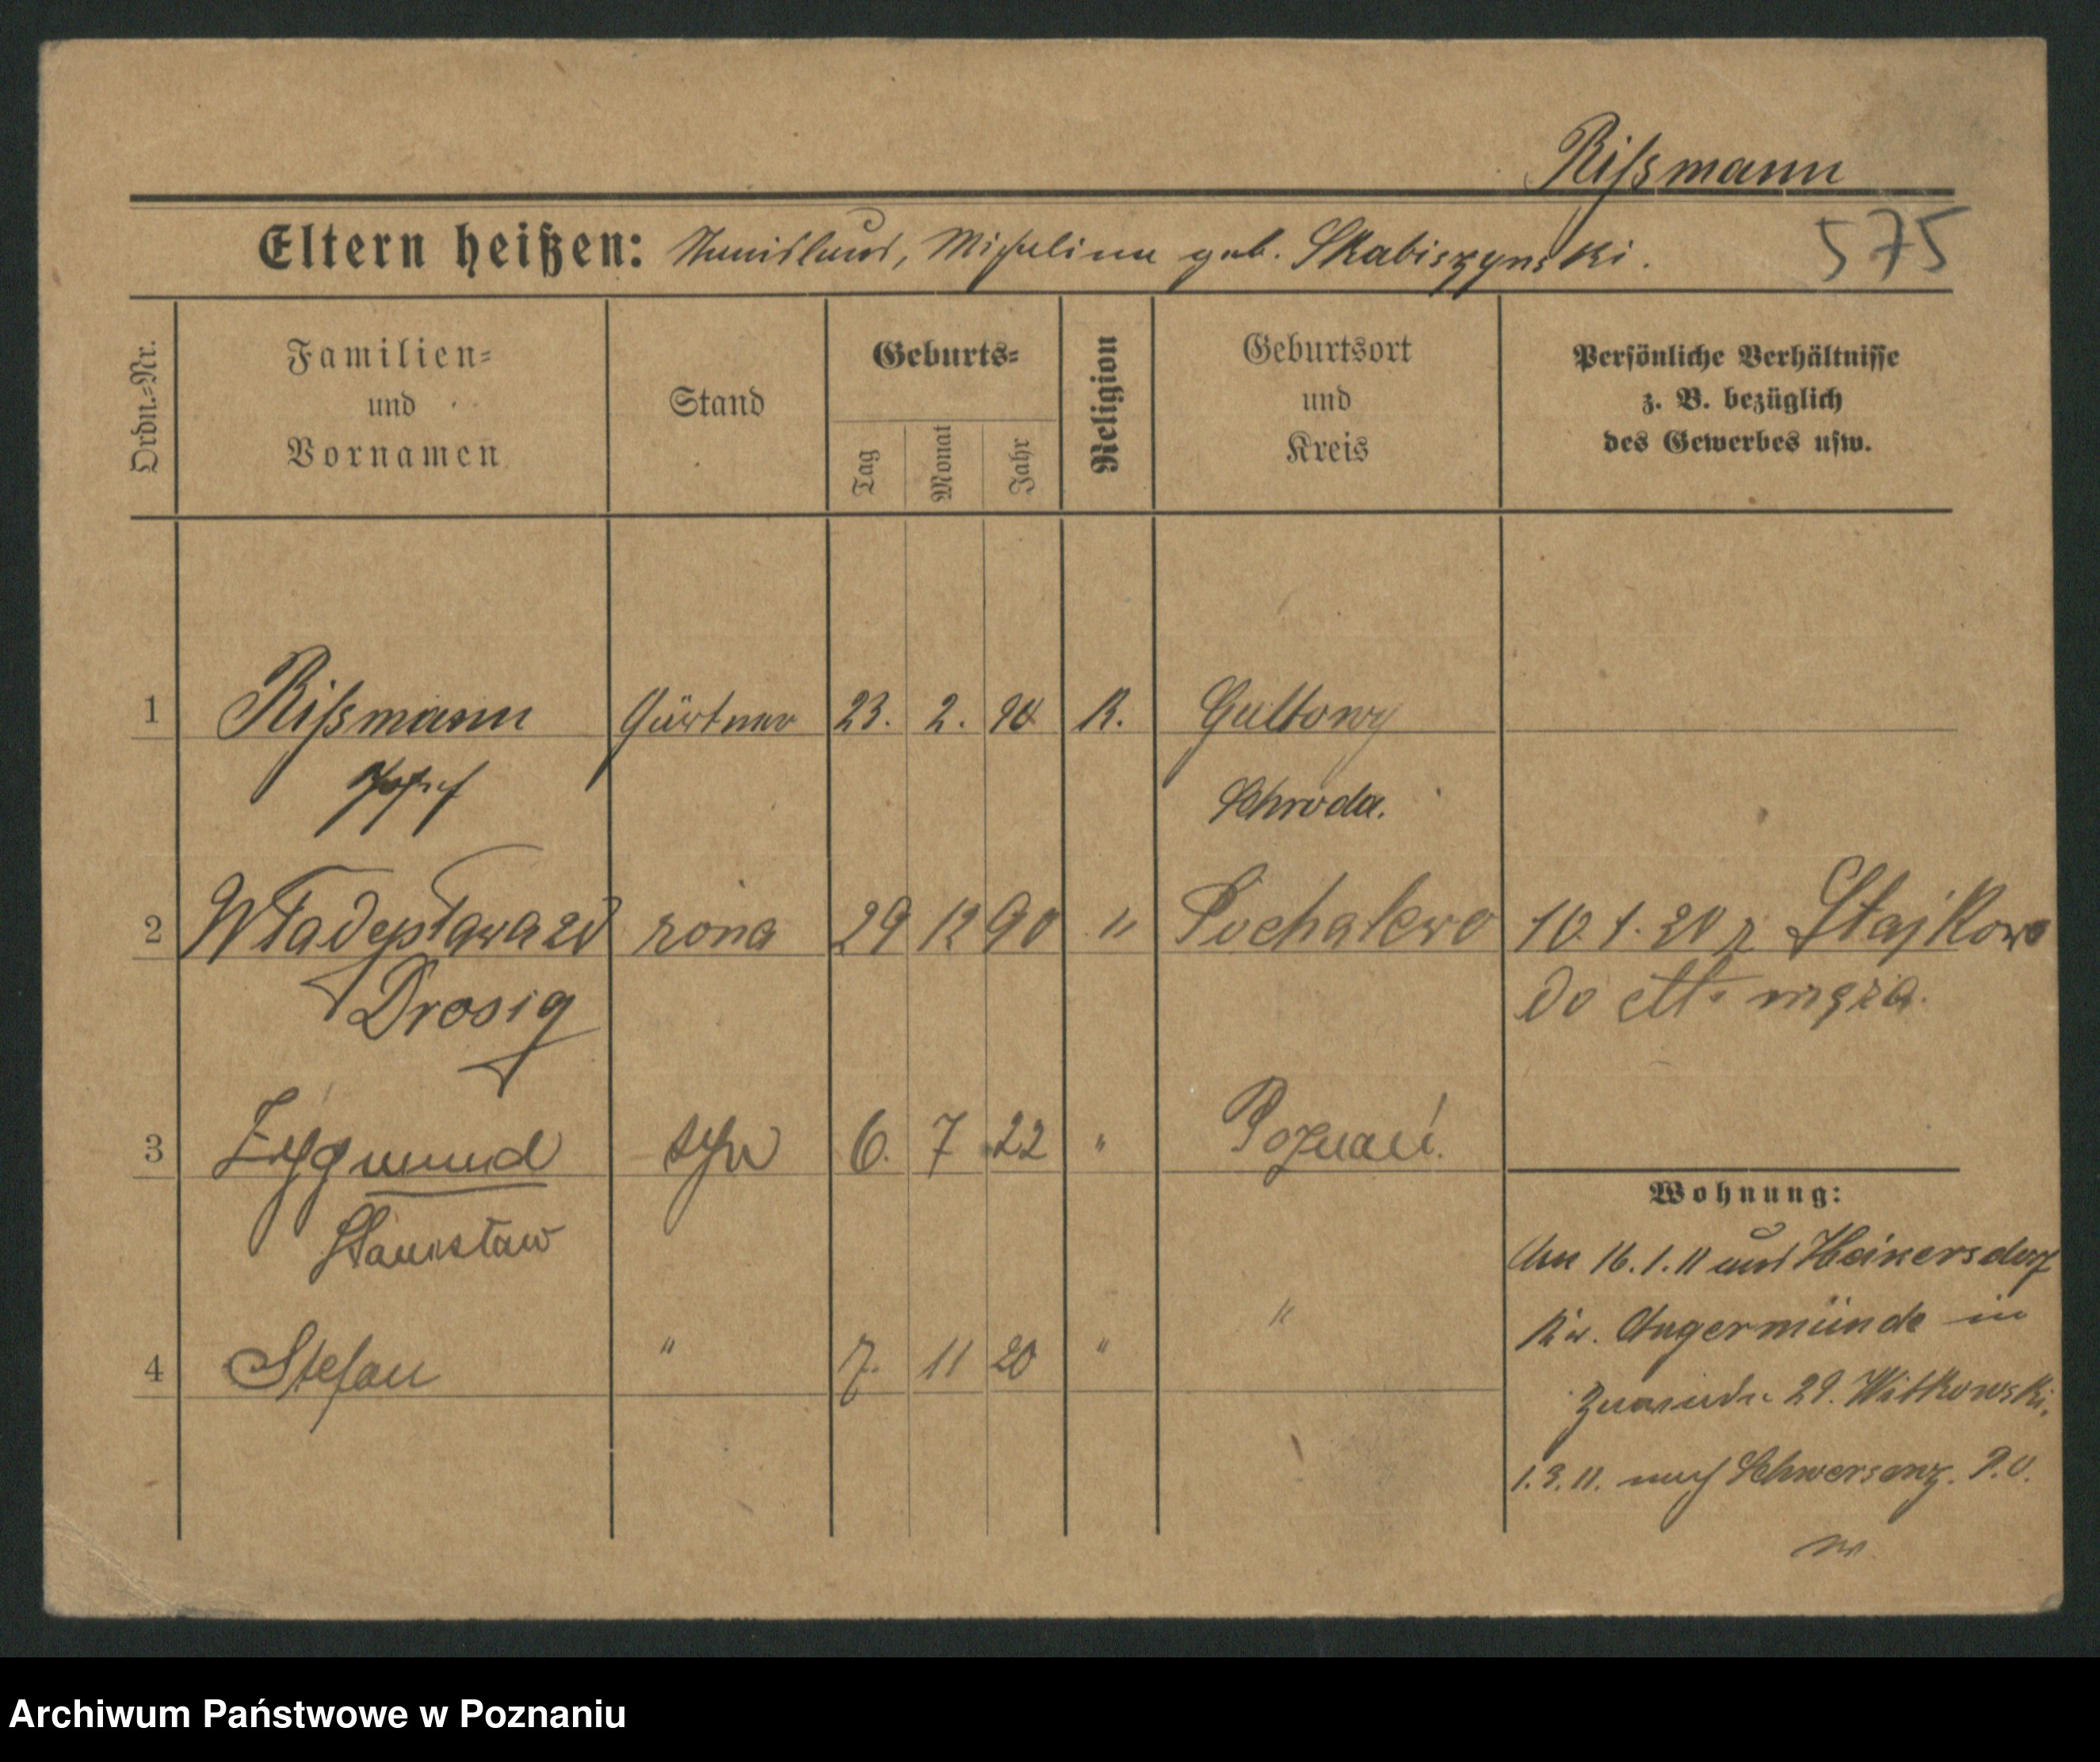 Rissmann
575
Eltern heißen: Stanislaus, Michalina geb. Skabiszynski.
Ordn.-Nr.
Familien-
und
Vornamen
Stand
Geburts-
Tag
Monat
Jahr
Religion
Geburtsort
und
Kreis
Persönliche Verhältnisse
z. B. bezüglich
des Gewerbes usw.
1 Rissmann Gärtner 23. 2. K. Gultowy
Josef Schroda.
2 Władysława zd żona 29 12 90 " 10.1.20 z Stajkowo
Drosig do męża.
3 Zygmund syn 6. 7 22 " Poznań.
Stanisław
4 Stefan " 7. 11 20 " "
Wohnung:
16.1.11 aus Heinersdorf
Kr. Angermünde in
29. Witkowski.
1.3.11. nach Schwersenz. P.O.
Archiwum Państwowe w Poznaniu